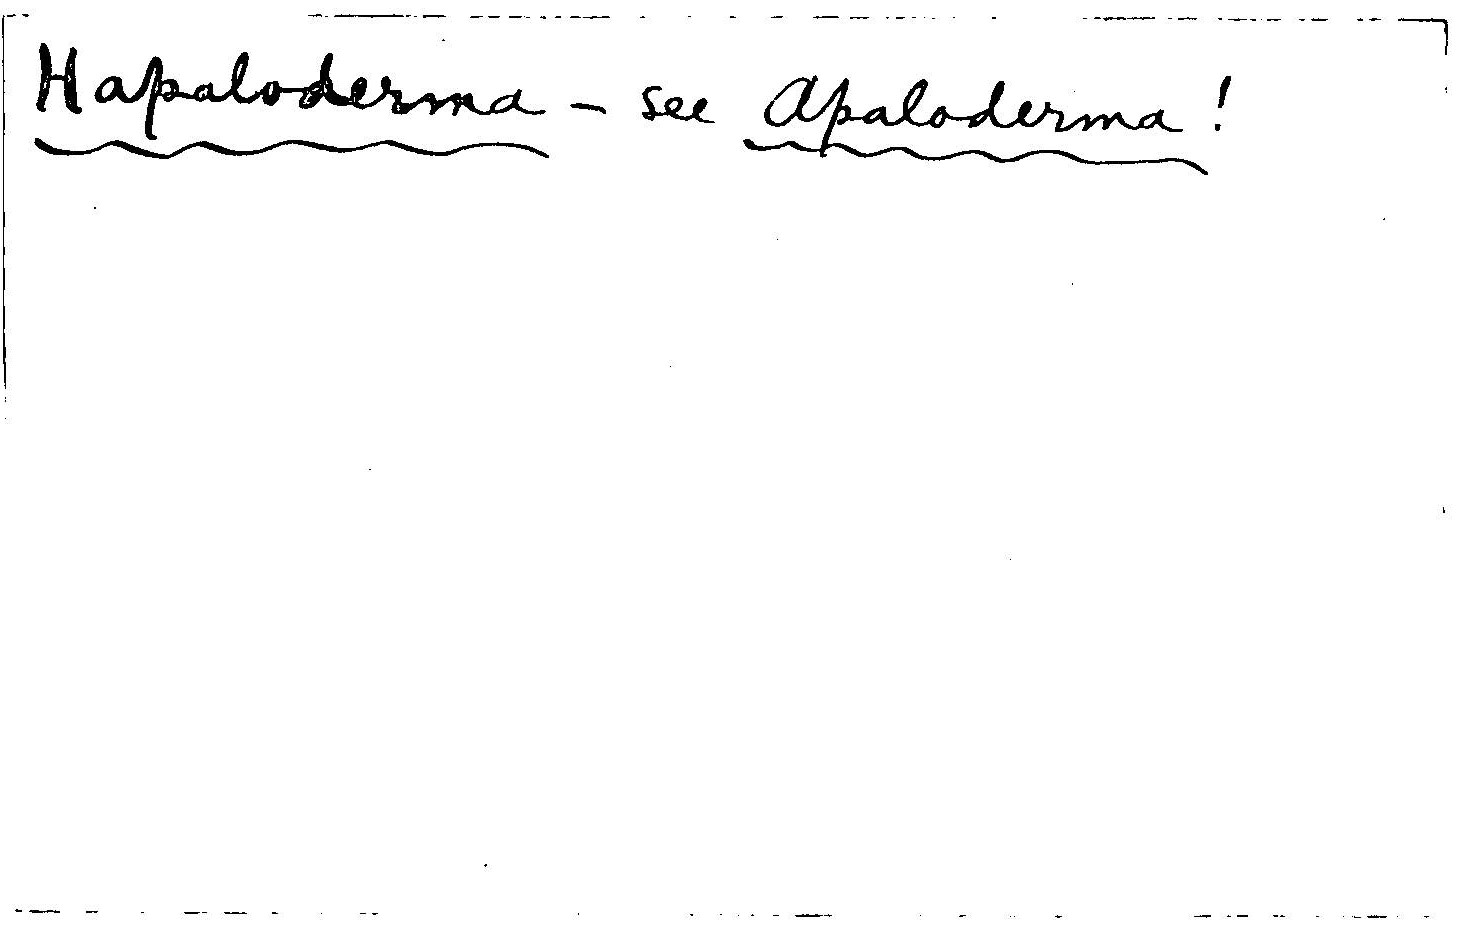 Hapaloderma – see Apaloderma!